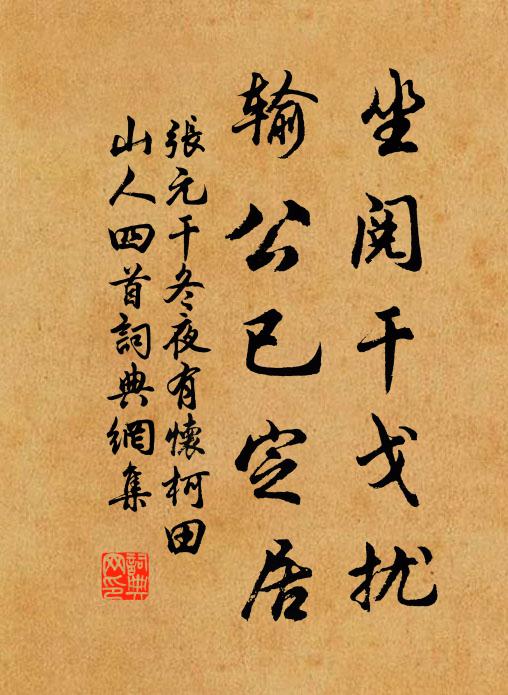 坐阅干戈扰
输公已定居
張元干冬夜有懷柯田
山人四首詞典網集
詞典
网印